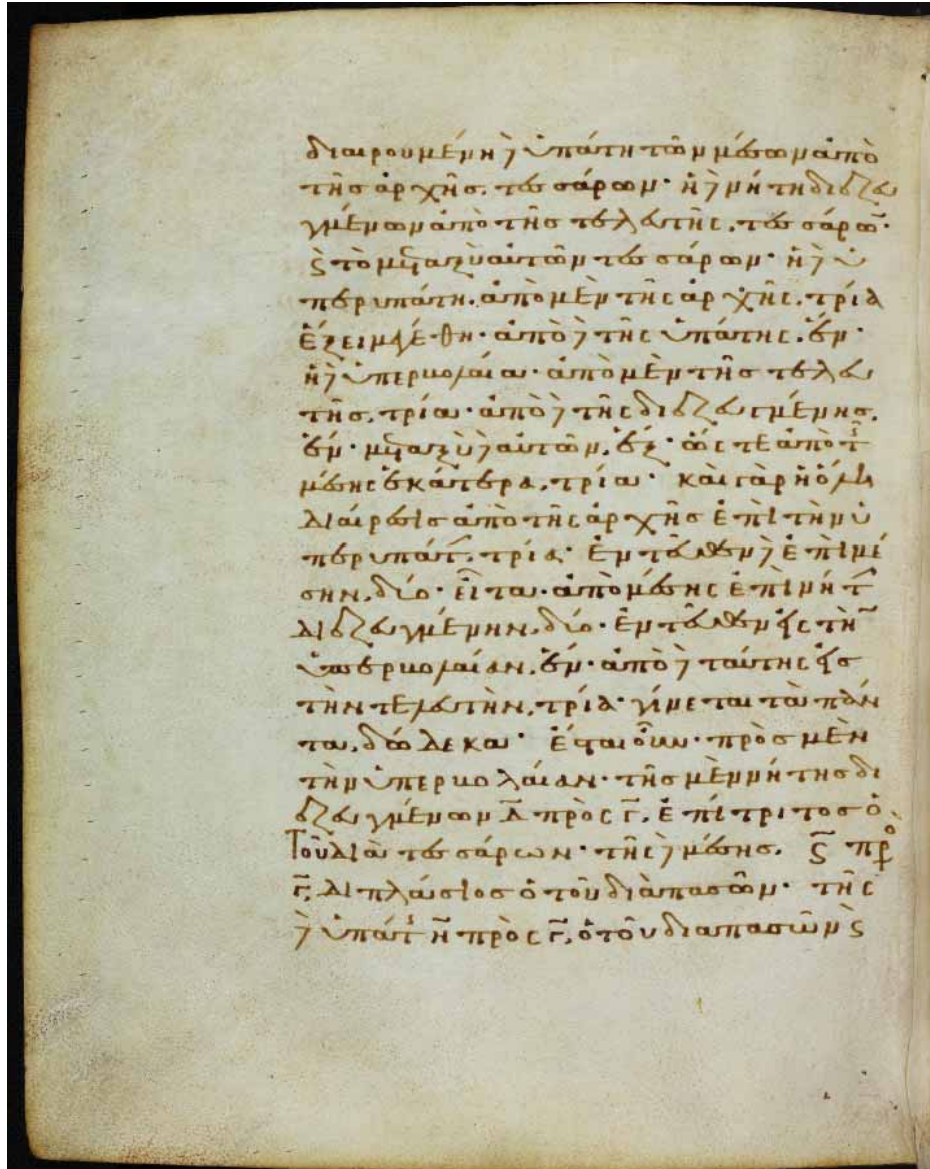 διαιρουμένη δ ὑπάτη τῶν μέσων ἀπὸ
τῆς ἀρχῆς, τεσσάρων· ἡ δ νήτη διεζευ
γμένων ἀπὸ τῆς τελευτῆς, τεσσάρω̅·
ϛ τὸ μεταξὺ αὐτῶν τεσσάρων· ἡ δ ὑ
περυπάτη, ἀπὸ μὲν τῆς ἀρχῆς, τρία
ἀπὸ δ τῆς ὑπάτης, ἕν·
ἡ δ ὑπερβολαία· ἀπὸ μὲν τῆς τελευ
τῆς, τρία· ἀπὸ δ τῆς διεζευγμένης,
ἕν· μεταξὺ δ αὐτῶν, ἕξ· ὥς τε ἀπὸ τ
μέσης ἑκάτερα, τρία· καὶ γὰρ ἡ ὅλη
διαίρεσις ἀπὸ τῆς ἀρχῆς ἐπὶ τὴν ὑ
περυπάτ, τρία· ἐντεῦθεν δ ἐπὶ μέ
σην, δύο· εἶτα ἀπὸ μέσης ἐπὶ νήτ
διεζευγμένην, δύο· ἐντεῦθεν εἰς τὴ̅
ὑπερβολαίαν, ἕν· ἀπὸ δ ταύτης εἰς
τὴν τελευτὴν, τρία· γίνεται τὰ πάν
τα, δώδεκα· ἔσται οὖν πρὸς μὲν
τὴν ὑπερβολαίαν· τῆς μὲν νήτης δι
εζευγμένων δ̅ πρὸς γ̅, ἐπίτριτος ὁ
τοῦ διὰ τεσσάρων· τῆς δ μέσης, ϛ̅ πρ
γ̅, διπλάσιος ὁ τοῦ διὰ πασῶν· τῆς
δ ὑπάτ η̅ πρὸς γ̅, ὁ τοῦ διαπασῶν ϛ